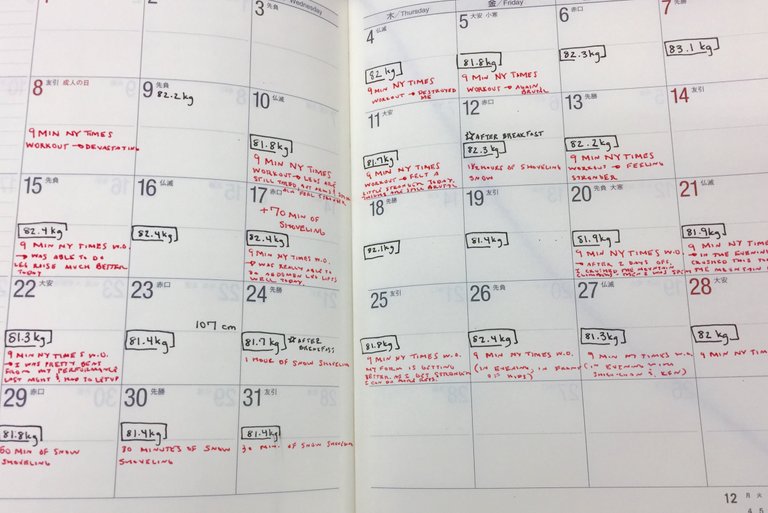 Wednesday
木/Thursday
金/Friday
3 先負
4 仏滅
82 kg
9 MIN NY TIMES
WORKOUT → DESTROYED
ME
5 大安 小寒
81.8kg
9 MIN NY TIMES
WORKOUT → AGAIN,
BRUTAL
6 赤口
82.3kg
7 先勝
83.1 kg
8 友引 成人の日
9 MIN NY TIMES
WORKOUT → DEVASTATING
9 先負
82.2kg
10 仏滅
81.8kg
9 MIN NY TIMES
WORKOUT → LEGS ARE
11 大安
81.7kg
9 MIN NY TIMES
WORKOUT → FELT A
LITTLE STRONGER TODAY.
12 赤口
☆AFTER BREAKFAST
82.3kg
HOURS OF SHOVELING
SNOW
13 先勝
82.2kg
9 MIN NY TIMES
WORKOUT → FEELING
STRONGER
14 友引
15 先負
82.4kg
9 MIN NY TIMES W.O.
→ WAS ABLE TO DO
LEG RAISE MUCH BETTER
TODAY
16 仏滅
82.4kg
17 赤口
+70 MIN OF
SHOVELING
82.4kg
9 MIN NY TIMES W.O.
→ WAS REALLY ABLE TO
DO ABDOMEN LEG LIFTS
WELL TODAY.
18 先勝
82.1kg
19 友引
81.4kg
20 先負 大寒
81.9kg
9 MIN NY TIMES W.O.
→ AFTER 2 DAYS OFF,
I CRUSHED THE MOUNTAIN
21 仏滅
81.9kg
9 MIN NY TIMES
→ IN THE EVENING
CRUSHED THIS
THE MOUNTAIN
22 大安
81.3kg
9 MIN NY TIMES W.O.
→ I WAS PRETTY BEAT
FROM MY PERFORMANCE
LAST NIGHT & HAD TO LET UP
23 赤口
107 cm
81.4kg
24 先勝
81.7kg ☆AFTER
BREAKFAST
1 HOUR OF SNOW SHOVELING
25 友引
81.8kg
9 MIN NY TIMES W.O.
MY FORM IS GETTING
BETTER. AS I GET STRONGER
I CAN DO MORE REPS.
26 先負
82.4kg
9 MIN NY TIMES W.O.
(IN EVENING, IN FRONT
OF KIDS)
27 仏滅
81.3kg
9 MIN NY TIMES W.O.
(IN EVENING WITH
& KEN)
28 大安
82 kg
9 MIN NY TIM
29 赤口
81.8kg
50 MIN OF SNOW
SHOVELING
30 先勝
81.4kg
30 MINUTES OF SNOW
SHOVELING
31 友引
81.4kg
30 MIN. OF SNOW SHOVELING
12 月 火
4 5